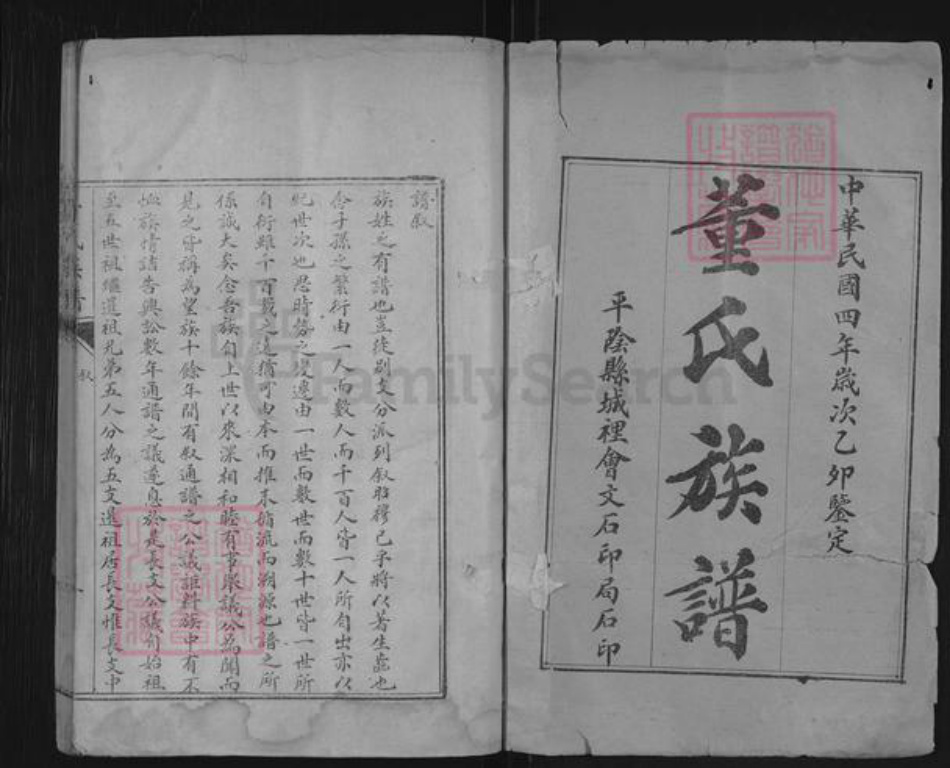 中華民國四年歲次乙卯鑒定
董氏族譜
平陰縣城裡會文石印局石印
譜叙
族姓之有譜也豈徒别支分派列叙昭穆已乎將以著生齒也
念子孫之繁衍由一人而數人而千百人皆一人所自出亦以
紀世次也思時勢之變遷由一世而數世而數十世皆一世所
自衍雖千百載之遠猶可由本而推末循流而溯源也譜之所
係誠大矣念吾族自上世以來深相和睦有事衆議公為聞而
見之皆稱為望族十餘年間有叙通譜之公議誰料族中有不
恤族情詰告興訟數年通譜之議遂息於是長支公議自始祖
至五世祖繼道祖兄弟五人分為五支進祖居長支惟長支中
叙
FamilySearch